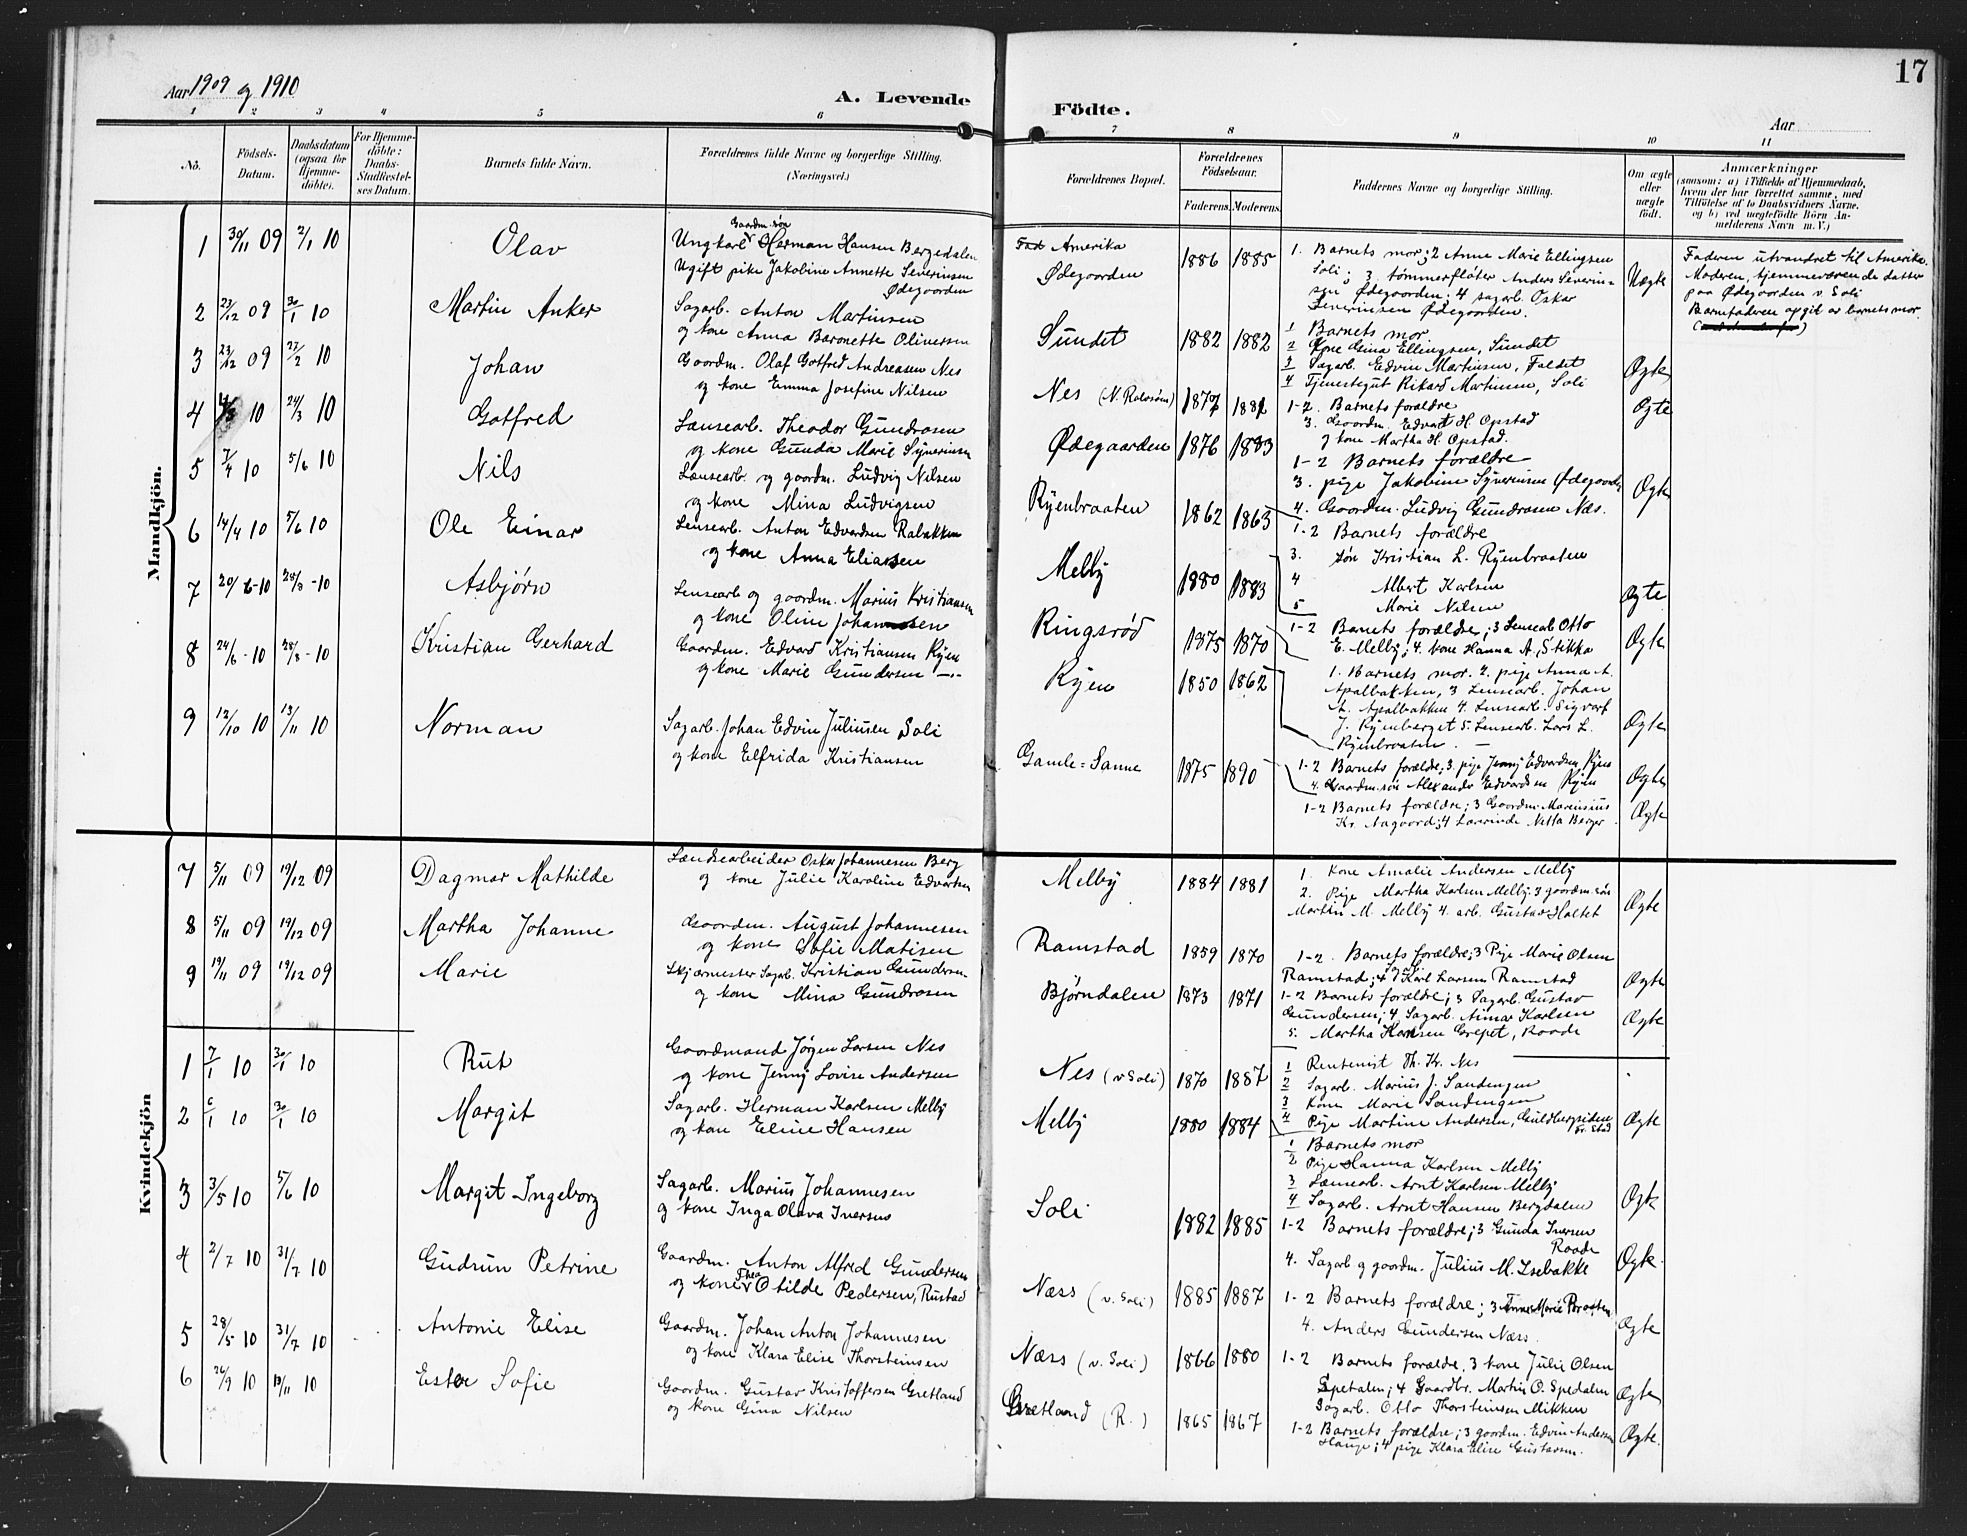 17
Aar 1909 og 1910
A. Levende Födte.
Aar
1 2 3 4 5 6 7 8 9 10 11
No.
Födsels-Datum.
Daabsdatum (ogsaa for Hjemme-döbte).
For Hjemme-döbte: Daabs-Stadfæstel-ses Datum.
Barnets fulde Navn.
Forældrenes fulde Navne og borgerlige Stilling. (Næringsvei.)
Forældrenes Bopæl.
Forældrenes Födselsaar.
Faderens. Moderens.
Faddernes Navne og borgerlige Stilling.
Om ægte eller uægte födt.
Anmærkninger
(saasom: a) i Tilfælde af Hjemmedaab, hvem der har forrettet samme, med Tilföielse af to Daabsvidners Navne, og b) ved uægtefödte Börn An-melderens Navn m. V.)
Mandkjön.
1 30/11 09 2/1 10 Olav
Gaardm. søn
Ungkarl Herman Hansen Bergedalen
Ugift pike Jakobine Annette Severinsen
Ødegaarden
Amerika
Ødegaarden
1886 1885
1. Barnets mor; 2 Anne Marie Ellingsen
Soli; 3 tømmerfløter Anders Severin-
sen Ødegaarden; 4 sagarb. Oskar
Severinsen Ødegaarden.
Uægte
Faderen utvandret til Amerika.
Moderen, hjemmeværende datter
paa Ødegaarden v. Soli
Barnefaderen opgit av barnets mor.
2 23/12 09 30/1 10 Martin Anker
Sagarb. Anton Martinsen
og kone Anna Baronette Oliversen
Sundet
1882 1882
1 Barnets mor
2 Kone Gina Ellingsen, Sundet
3 Sagarb. Edvin Martinsen, Faldet
4 Tjenestegut Rikard Martinsen, Soli
Ægte
3 23/12 09 27/2 10 Johan
Gaardm. Olaf Gotfred Andreasen Nes
og kone Emma Josefine Nilsen
Nes
1877 1881
1-2. Barnets forældre
3. Gaardm. Edvart H. Opstad
og kone Martha H. Opstad.
Ægte
4 10 24/3 10 Gotfred
Lænsearb. Theodor Gundrosen
og kone Gunda Marie Synerinsen
Ødegaarden
1876 1883
1-2 Barnets forældre
3. pige Jakobine Synerinsen Ødegaarden
4. Gaardm. Ludvig Gundrosen Næs.
Ægte
5 7/4 10 5/6 10 Nils
Lænsearb. og gaardm. Ludvig Nilsen
og kone Mina Ludvigsen
Ryenbraaten
1862 1863
1-2 Barnets forældre
3. søn Kristian L. Ryenbraaten
4 Albert Karlsen
5 Marie Nilsen
Ægte
6 14/4 10 5/6 10 Ole Einar
Lensearb. Anton Edvardsen Rabakken
og kone Anna Eliassen
Melby
1880 1883
1-2 Barnets forældre; 3 Lensearb Otto
E. Melby; 4. kone Hanna A. Stikka
Ægte
7 20/6-10 28/8-10 Asbjørn
Lensearb og gaardm. Marius Kristiansen
og kone Oline Johannesen
Ringsrød
1875 1870
1. Barnets mor. 2. pige Anna A.
Apalbakken, 3 Lensearb. Johan
A. Apalbakken 4. Lensearb. Sigvarf
J. Ryenberget 5. Lensearb. Lars L.
Ryenbraaten.
Ægte
8 24/6-10 28/8-10 Kristian Gerhard
Gaardm. Edvard Kristiansen Ryen
og kone Marie Gundersen -"-
Ryen
1850 1862
1-2 Barnets forældre; 3. pige Jenny Edvardsen Ryen
4. Gaardm. søn Alexander Edvardsen Ryen
Ægte
9 12/10 10 13/11 10 Norman
Sagarb. Johan Edvin Juliusen Soli
og kone Elfrida Kristiansen
Gamle-Sanne
1875 1890
1-2 Barnets forældre; 3 Gaardm. Marensius
Kr. Aagaard; 4 Lærerinde Netta Berger
Ægte
Kvindekjön
7 5/11 09 19/12 09 Dagmar Mathilde
Lændsearbeider Oskar Johannesen Berg
og kone Julie Karoline Edvartsen
Melby
1884 1881
1. Kone Amalie Andersen Melby
2. Pige Martha Karlsen Melby. 3 gaardm. søn
Martin M. Melby 4. arb. Gustav Holtet
Ægte
8 5/11 09 19/12 09 Martha Johanne
Gaardm. August Johannesen
og kone Sofie Matisen
Ramstad
1859 1870
1-2. Barnets forældre; 3 Pige Marie Olsen
Ramstad; 4 Karl Larsen Ramstad
Ægte
9 19/11 09 19/12 09 Marie
Skjærmester Sagarb. Kristian Gundersen
og kone Mina Gundrosen
Bjørndalen
1873 1871
1-2 Barnets forældre; 3 Sagarb. Gustav
Gundersen; 4 Sagarb. Aimar Karlsen
5. Martha Hansen Grepet, Raade
Ægte
1 7/1 10 30/1 10 Rut
Gaardmand Jørgen Larsen Nes
og kone Jenny Lovise Andersen
Nes (v Soli)
1870 1887
1 Rentenist Th. Kr. Nes
2 Sagarb. Marius J. Sandengen
3 Kone Marie Sandengen
4 Pige Martine Andersen, Guldbergsiden
Fr. stad
Ægte
2 6/1 10 30/1 10 Margit
Sagarb. Herman Karlsen Melby
og kone Eline Hansen
Melby
1880 1884
1 Barnets mor
2 Pige Hanna Karlsen Melby
3 Lænsearb. Arnt Karlsen Melby
4 Sagarb. Arnt Hansen Bergdalen
Ægte
3 3/5 10 5/6 10 Margit Ingeborg
Sagarb. Marius Johannesen
og kone Inga Olava Iversen
Soli
1882 1885
1-2 Barnets forældre; 3 Gunda Iversen
Raade
4. Sagarb og gaardm. Julius M. Isebakke
Ægte.
4 2/7 10 31/7 10 Gudrun Petrine
Gaardm. Anton Alfred Gundersen
og kone Thea Otilde Pedersen, Rustad
Næss (v. Soli)
1885 1887
1-2 Barnets forældre; 3 Anne Marie Braaten
4. Anders Gundersen Næss.
Ægte
5 28/5 10 31/7 10 Antonie Elise
Gaardm. Johan Anton Johannesen
og kone Klara Elise Thorsteinsen
Næss (v. Soli)
1866 1880
1-2 Barnets forældre. 3 kone Julie Olsen
Spetalen; 4 Gaardbr. Martin O. Spedalen
Sagarb. Otto Thorsteinsen Mikken
Ægte
6 24/9 10 13/11 10 Ester Sofie
Gaardm. Gustav Kristoffersen Gretland
og kone Gina Nilsen
Grætland (R.)
1865 1867
1-2 Barnets forældre; 3 gaardm. Edvin Andersen
Hauge; 4 pige Klara Elise Gustavsen.
Ægte.